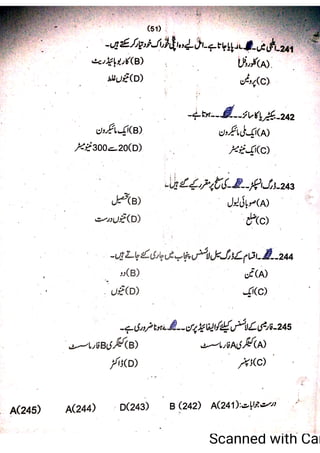 (51)
241- الجی میں ۔۔۔ مادہ پایا جاتا ہے۔ اس لیے وہ اپنی خوراک خود تیار کر سکتے ہیں۔
(A) کلوروفل (B) کاربوہائیڈریٹ
(C) پروٹین (D) تینوں غلط
242- بیکٹیریا کا سائز ۔۔۔ ہوتا ہے۔
(A) ایک ملی مائیکرون (B) ایک مائیکرون
(C) ایک نینومیٹر (D) 20 سے 300 نینومیٹر
243- ڈرگ انسپکٹر ۔۔۔ کی سطح پر مقرر کیے گئے ہیں۔
(A) صوبائی لیول (B) تحصیل
(C) ضلع (D) تینوں درست
244- ۔۔۔ اقسام کے ڈرگ سیل لائسنس پنجاب میں جاری کئے جاتے ہیں۔
(A) تین (B) دو
(C) ایک (D) تینوں
245- فارمیسی کے لائسنس کیلئے کوالیفائیڈ پرسن ۔۔۔ ہونا ضروری ہے۔
(A) کیٹگری A فارماسسٹ (B) کیٹگری B فارماسسٹ
(C) ڈسپنسر (D) ڈاکٹر
درست جوابات: A(241) B (242) D(243) A(244) A(245)
Scanned with Ca